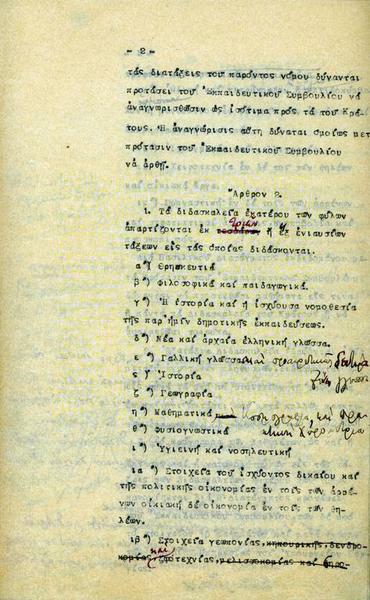 - 2 -
τάς διατάξεις τοῦ παρόντος νόμου δύνανται
προτάσει τοῦ Ἐκπαιδευτικοῦ Συμβουλίου νά
ἀναγνωρισθῶσιν ὡς ἰσότιμα πρός τά τοῦ Κρά-
τους. Ἡ ἀναγνώρισις αὕτη δύναται ὁμοίως μετ
πρότασιν τοῦ Ἐκπαιδευτικοῦ Συμβουλίου
νά ἀρθῇ.
Ἄρθρον 2.
1. Τά διδασκαλεῖα ἑκατέρου τῶν φύλων
ἀπαρτίζονται ἐκ τριῶν ἤ ἕξ ἐνιαυσίων
τάξεων εἰς τάς ὁποίας διδάσκονται.
α') Θρησκευτικά
β') Φιλοσοφικά καί παιδαγωγικά.
γ') Ἡ ἱστορία καί ἡ ἰσχύουσα νομοθεσία
τῆς παρ' ἡμῖν δημοτικῆς ἐκπαιδεύσεως.
δ') Νέα καί ἀρχαία ἑλληνική γλῶσσα.
ε') Γαλλική γλῶσσα
ς') Ἱστορία
ζ') Γεωγραφία
η') Μαθηματικά
θ') Φυσιογνωστικά
ι') Ὑγιεινή καί νοσηλευτική
ια') Στοιχεῖα τοῦ ἰσχύοντος δικαίου καί
τῆς πολιτικῆς οἰκονομίας ἐν τοῖς τῶν ἀρρέ-
νων οἰκιακή δέ οἰκονομία ἐν τοῖς τῶν θη-
λέων.
ιβ') Στοιχεῖα γεωπονίας, κηπουρικῆς, δενδρο-
κομίας, καί ζωοτεχνίας, μελισσοκομίας καί